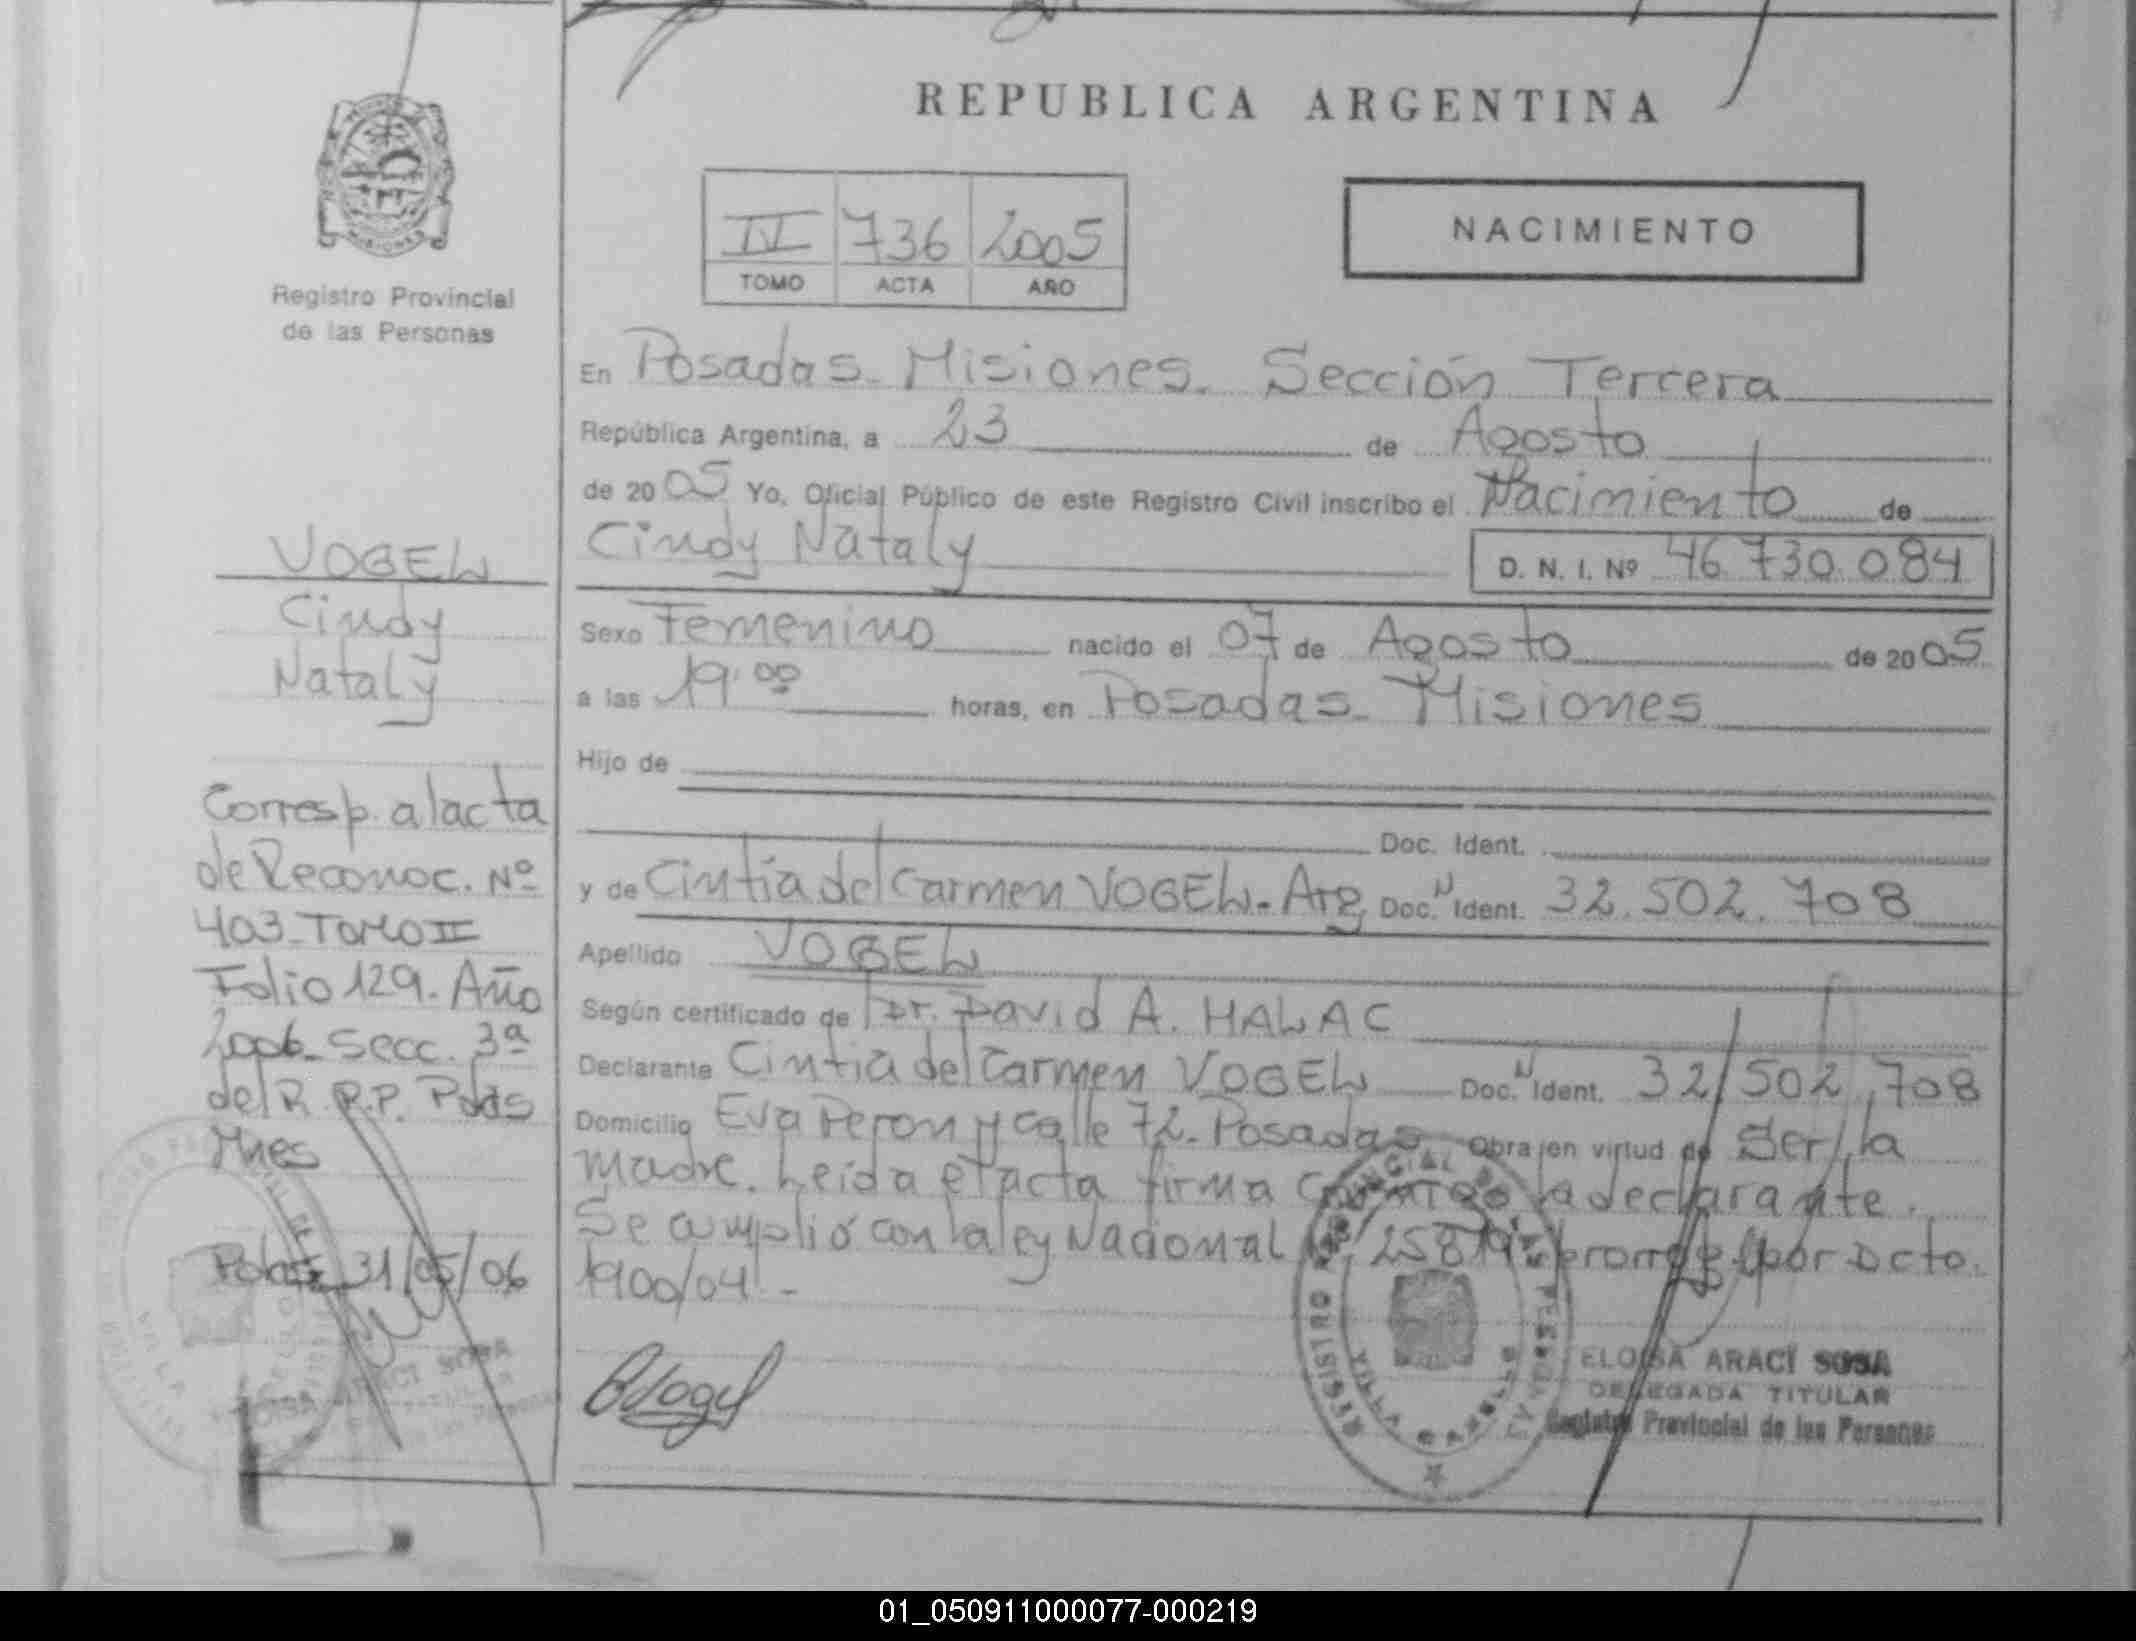 REPUBLICA ARGENTINA
MISIONES
Registro Provincial
de las Personas
IV 736 2005
TOMO ACTA AÑO
NACIMIENTO
En Posadas. Misiones. Sección Tercera
República Argentina, a 23 de Agosto
de 2005 Yo, Oficial Público de este Registro Civil inscribo el Nacimiento de
Cindy Nataly D. N. I. Nº 46.730.084
Sexo Femenino nacido el 07 de Agosto de 2005
a las 19:00 horas, en Posadas. Misiones
Hijo de
Doc. Ident.
y de Cintia del Carmen VOGEL. Arg Doc. N Ident. 32.502.708
Apellido VOGEL
Según certificado de Dr. David A. HALAC
Declarante Cintia del Carmen VOGEL Doc. N Ident. 32.502.708
Domicilio Eva Peron y calle 72. Posadas Obra en virtud de Ser la
madre. Leída el acta firma conmigo la declarante.
Se cumplió con la ley Nacional Nº 25819 prorrog. por Dcto.
1900/04.-
VOGEL
Cindy
Nataly
Corresp. al acta
de Reconoc. Nº
403. Tomo II
Folio 129. Año
2006. Secc. 3ª
del R.P.P. Pdas
Mnes
Pdas. 31/05/06
ELOISA ARACI SOSA
DELEGADA TITULAR
Registro Provincial de las Personas
BVogel
ELOISA ARACI SOSA
DELEGADA TITULAR
Registro Provincial de las Personas
01_050911000077-000219